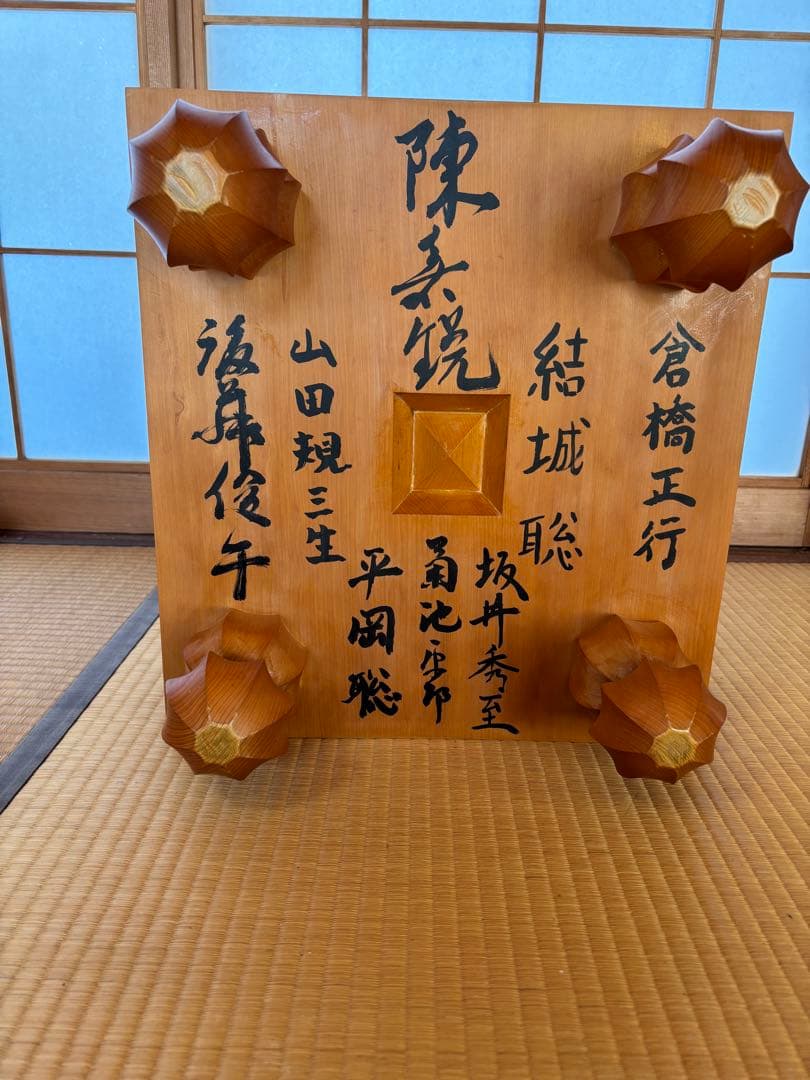 倉橋正行
結城聡
陳嘉鋭
坂井秀至
菊池康郎
平岡聡
山田規三生
後藤俊午